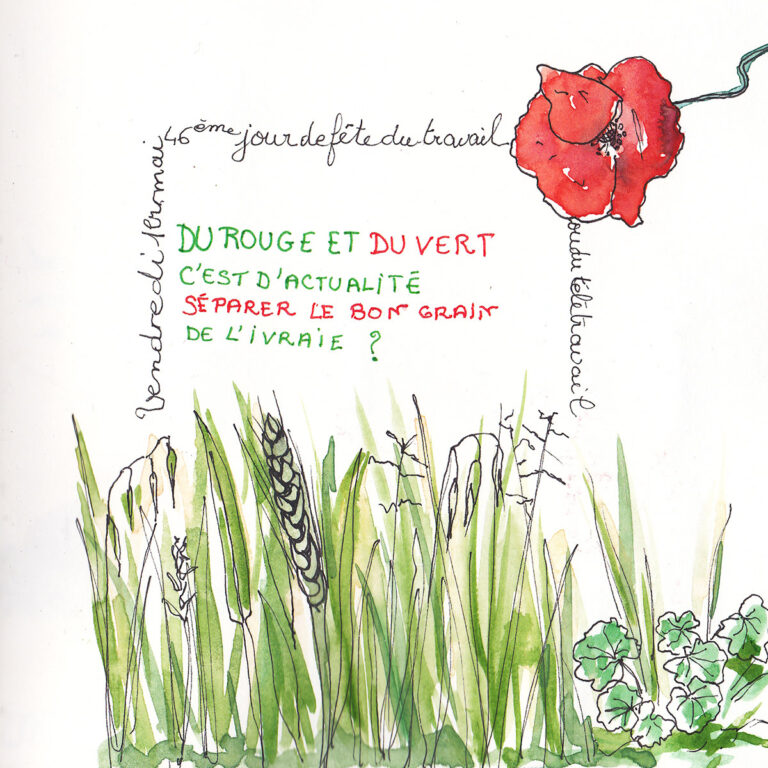 Vendredi 1er mai
46ème jour de fête du travail
ou du télétravail
DU ROUGE ET DU VERT
C'EST D'ACTUALITÉ
SÉPARER LE BON GRAIN
DE L'IVRAIE ?